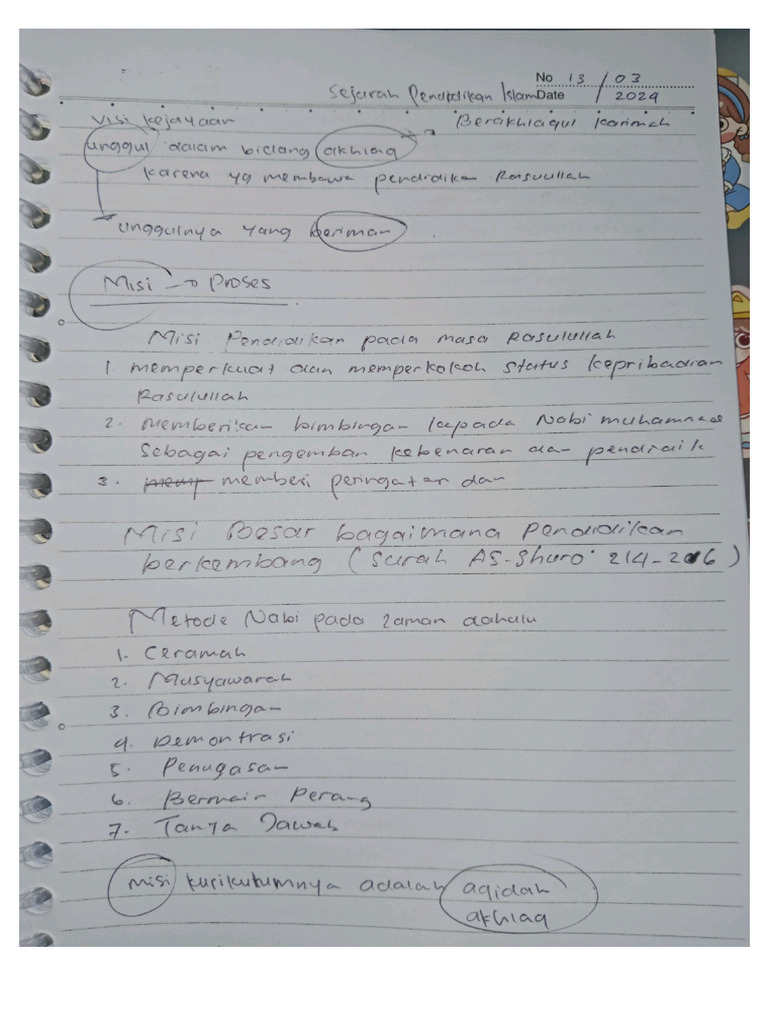 No 13 / 03
Sejarah Pendidikan Islam Date / 2024
Visi Kejayaan Berakhlaqul karimah
unggul dalam bidang akhlaq
karena yg membawa pendidika Rasulullah
unggulnya yang beriman
Misi → Proses
Misi Pendidikan pada masa Rasulullah
1. memperkuat dan memperkokoh status kepribadian
Rasulullah
2. memberikan bimbingan kepada Nabi muhammad
sebagai pengemban kebenaran dan pendidik
3. memberi peringatan dan
Misi Besar bagaimana Pendidikan
berkembang (surah AS-Shuro: 214-216)
Metode Nabi pada zaman dahulu
1. Ceramah
2. Musyawarah
3. Bimbingan
4. Demontrasi
5. Penugasan
6. Bermain Perang
7. Tanya Jawab
misi kurikulumnya adalah aqidah
akhlaq